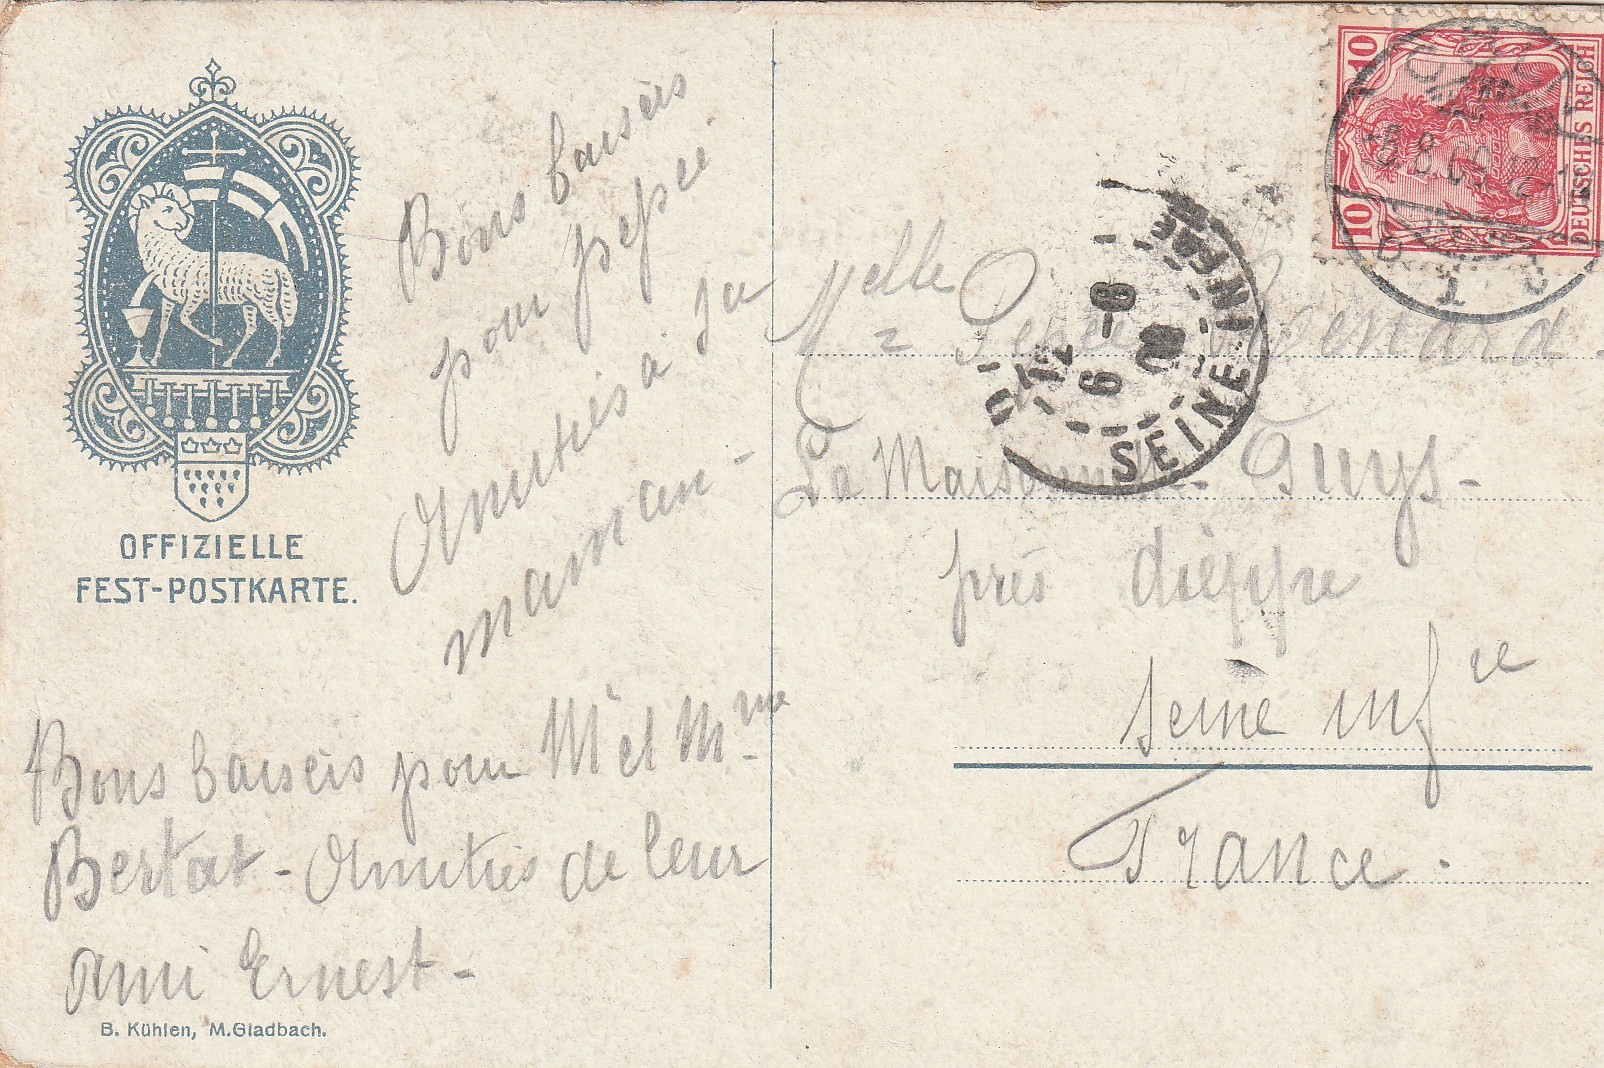 OFFIZIELLE
FEST-POSTKARTE.
Bons baisers
pour pepée
Amitiés à sa
maman -
Bons baisers pour Mr et Mme
Bertat - Amitiés de leur
ami Ernest -
B. Kühlen, M.Gladbach.
10 10
DEUTSCHES REICH
5.8.09
12 -8
6 09
SEINE-INFRE
Melle
La Maisonnette. Puys -
près dieppe
Seine infre
France.